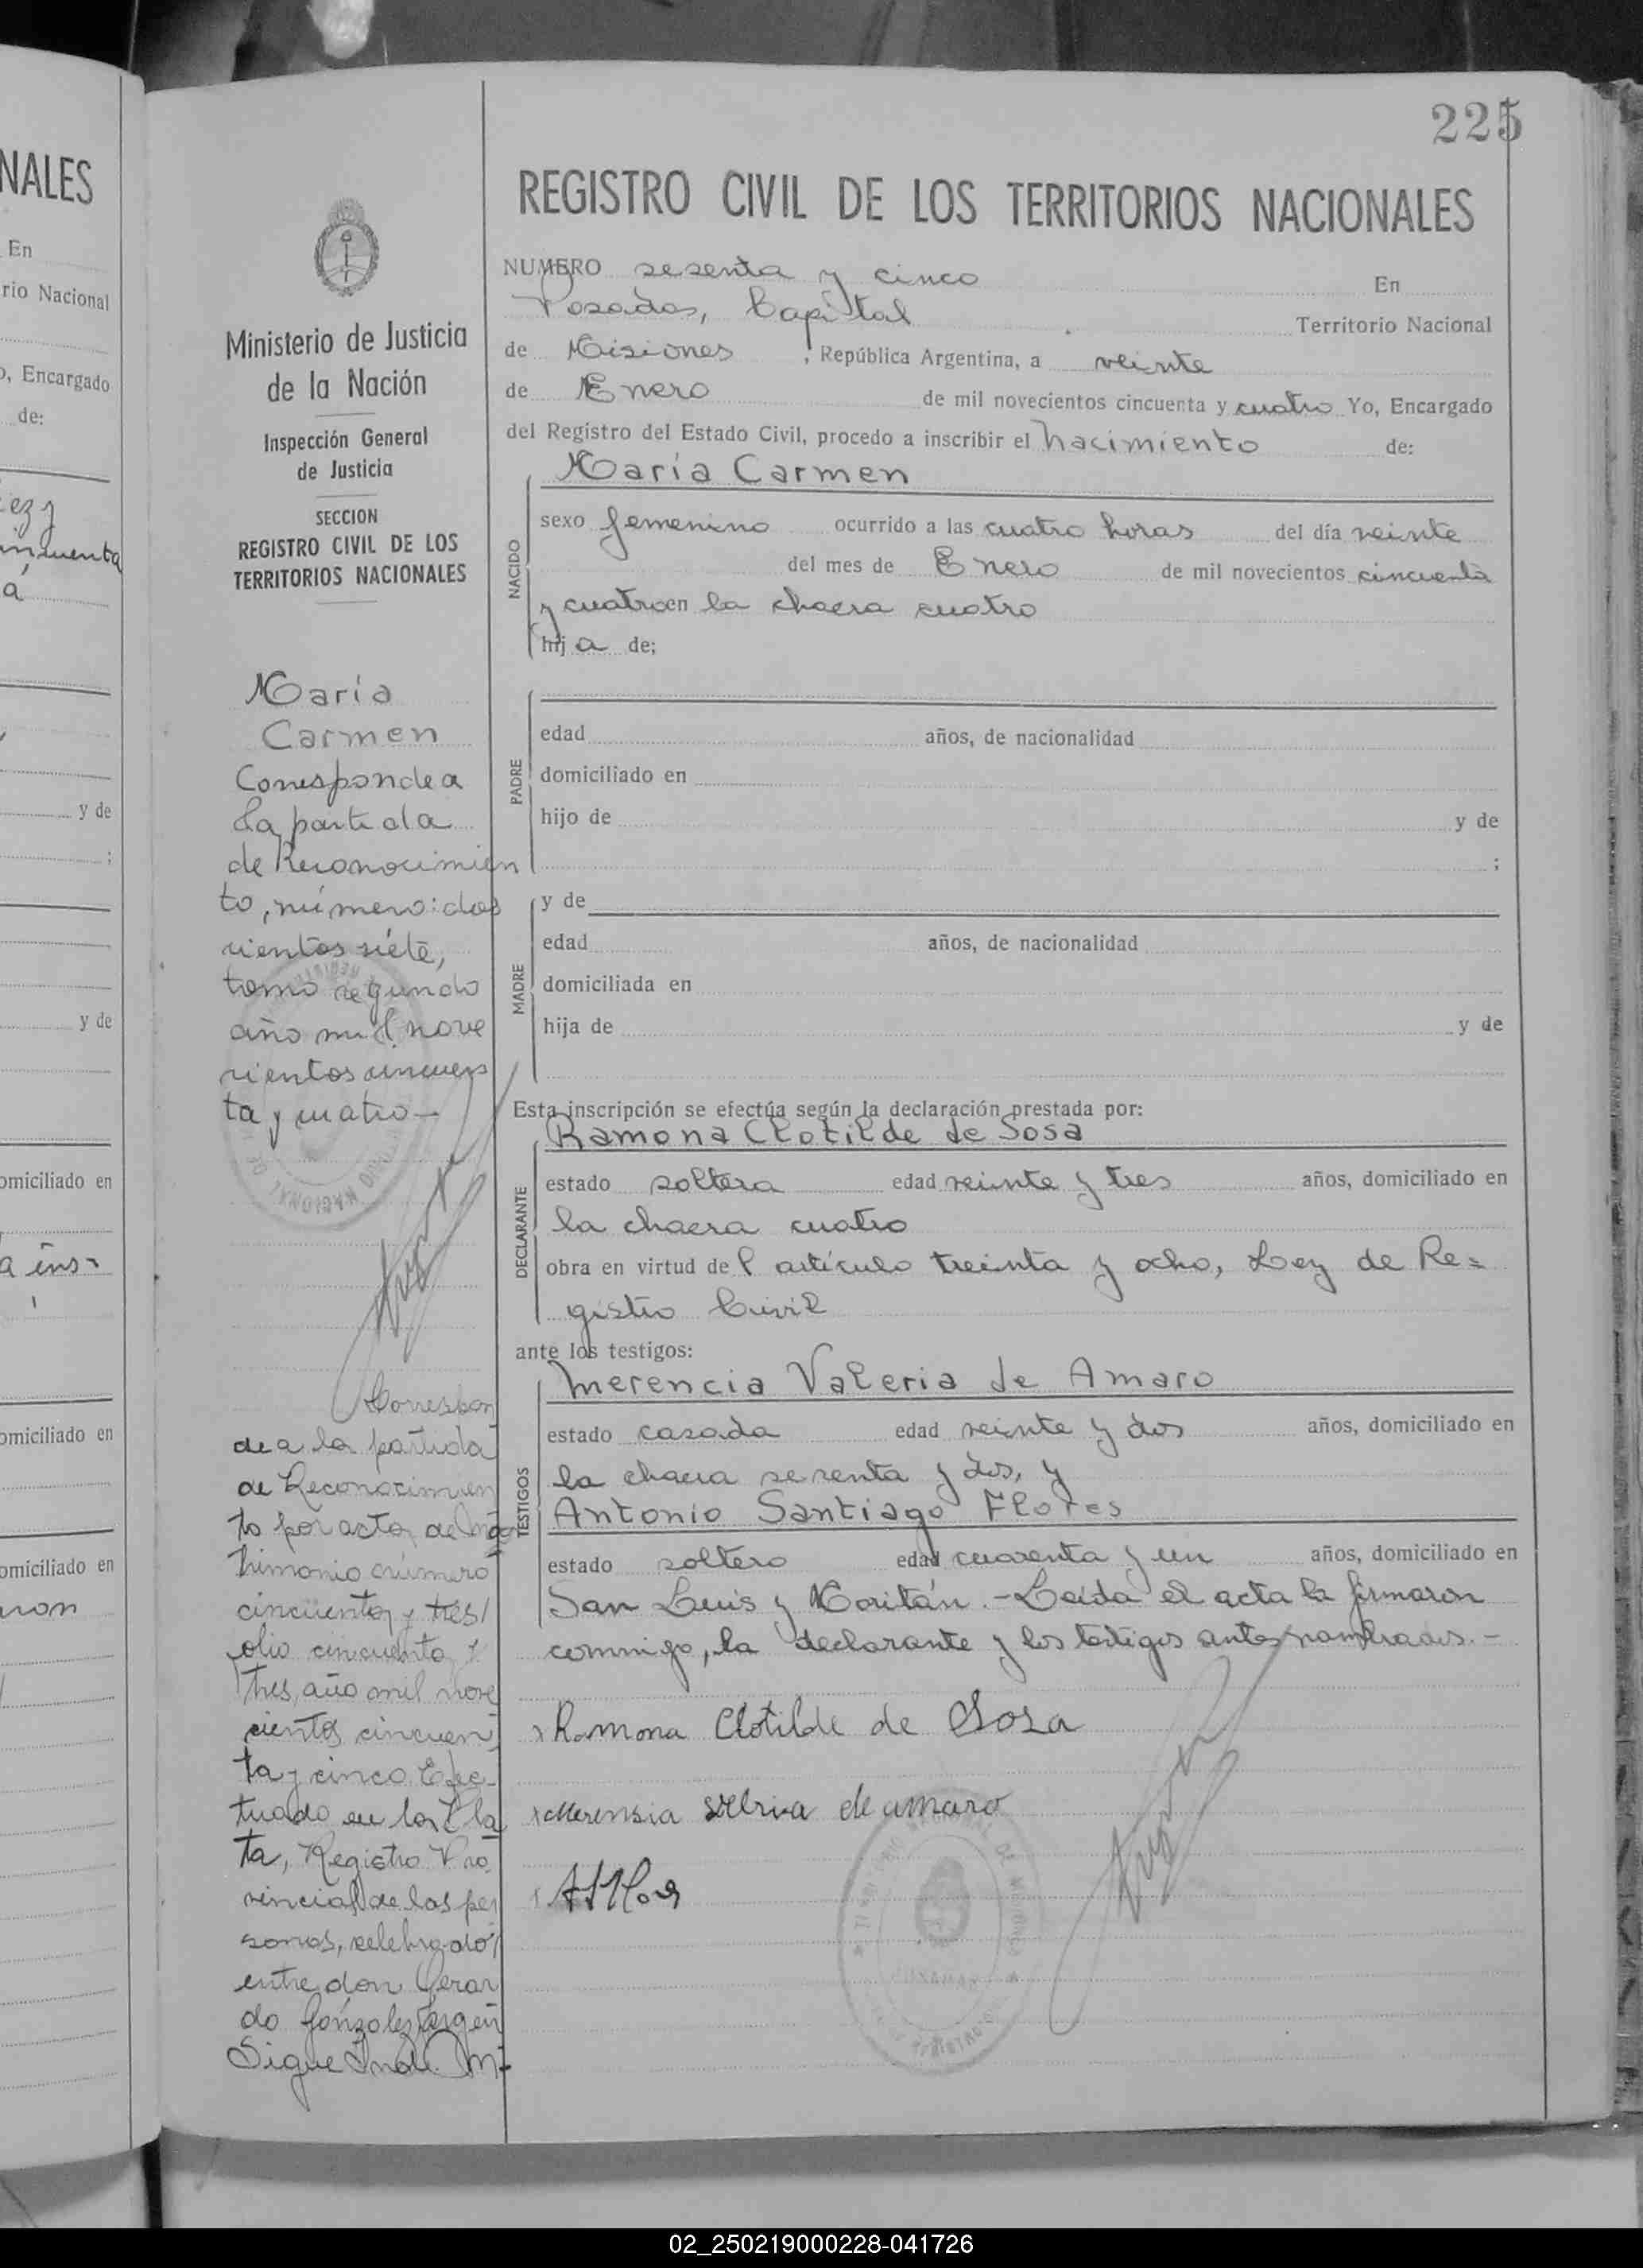 NALES
En
rio Nacional
o, Encargado
de:
iez y
cincuenta
a
y de
;
y de
omiciliado en
a ins-
omiciliado en
omiciliado en
ron
225
Ministerio de Justicia
de la Nación
Inspección General
de Justicia
SECCION
REGISTRO CIVIL DE LOS
TERRITORIOS NACIONALES
María
Carmen
Corresponde a
la partida
de Reconocimien
to, número: dos
cientos siete,
tomo segundo
año mil nove
cientos cincuen
ta y cuatro -
Correspon
de a la partida
de Reconocimien
to por acta de ma
trimonio número
cincuenta y tres/
folio cincuenta y
tres, año mil nove
cientos cincuen
ta y cinco. Efec-
tuado en La Pla
ta, Registro Pro
vincial de las per
sonas, celebrado
entre don Gerar
do González, Argen
Sigue
REGISTRO CIVIL DE LOS TERRITORIOS NACIONALES
NUMERO sesenta y cinco En
Posadas, Capital Territorio Nacional
de Misiones , República Argentina, a veinte
de Enero de mil novecientos cincuenta y cuatro Yo, Encargado
del Registro del Estado Civil, procedo a inscribir el nacimiento de:
María Carmen
NACIDO
sexo femenino ocurrido a las cuatro horas del día veinte
del mes de Enero de mil novecientos cincuenta
y cuatro en la chacra cuatro
hij a de;
PADRE
edad años, de nacionalidad
domiciliado en
hijo de y de
;
y de
MADRE
edad años, de nacionalidad
domiciliada en
hija de y de
Esta inscripción se efectúa según la declaración prestada por:
Ramona Clotilde de Sosa
DECLARANTE
estado soltera edad veinte y tres años, domiciliado en
la chacra cuatro
obra en virtud del artículo treinta y ocho, Ley de Re=
gistro Civil
ante los testigos:
Merencia Valeria de Amaro
TESTIGOS
estado casada edad veinte y dos años, domiciliado en
la chacra sesenta y dos, y
Antonio Santiago Flores
estado soltero edad cuarenta y un años, domiciliado en
San Luis y Moritán. - Leída el acta la firmaron
conmigo, la declarante y los testigos antes nombrados. -
Ramona Clotilde de Sosa
Merensia de amaro
02_250219000228-041726